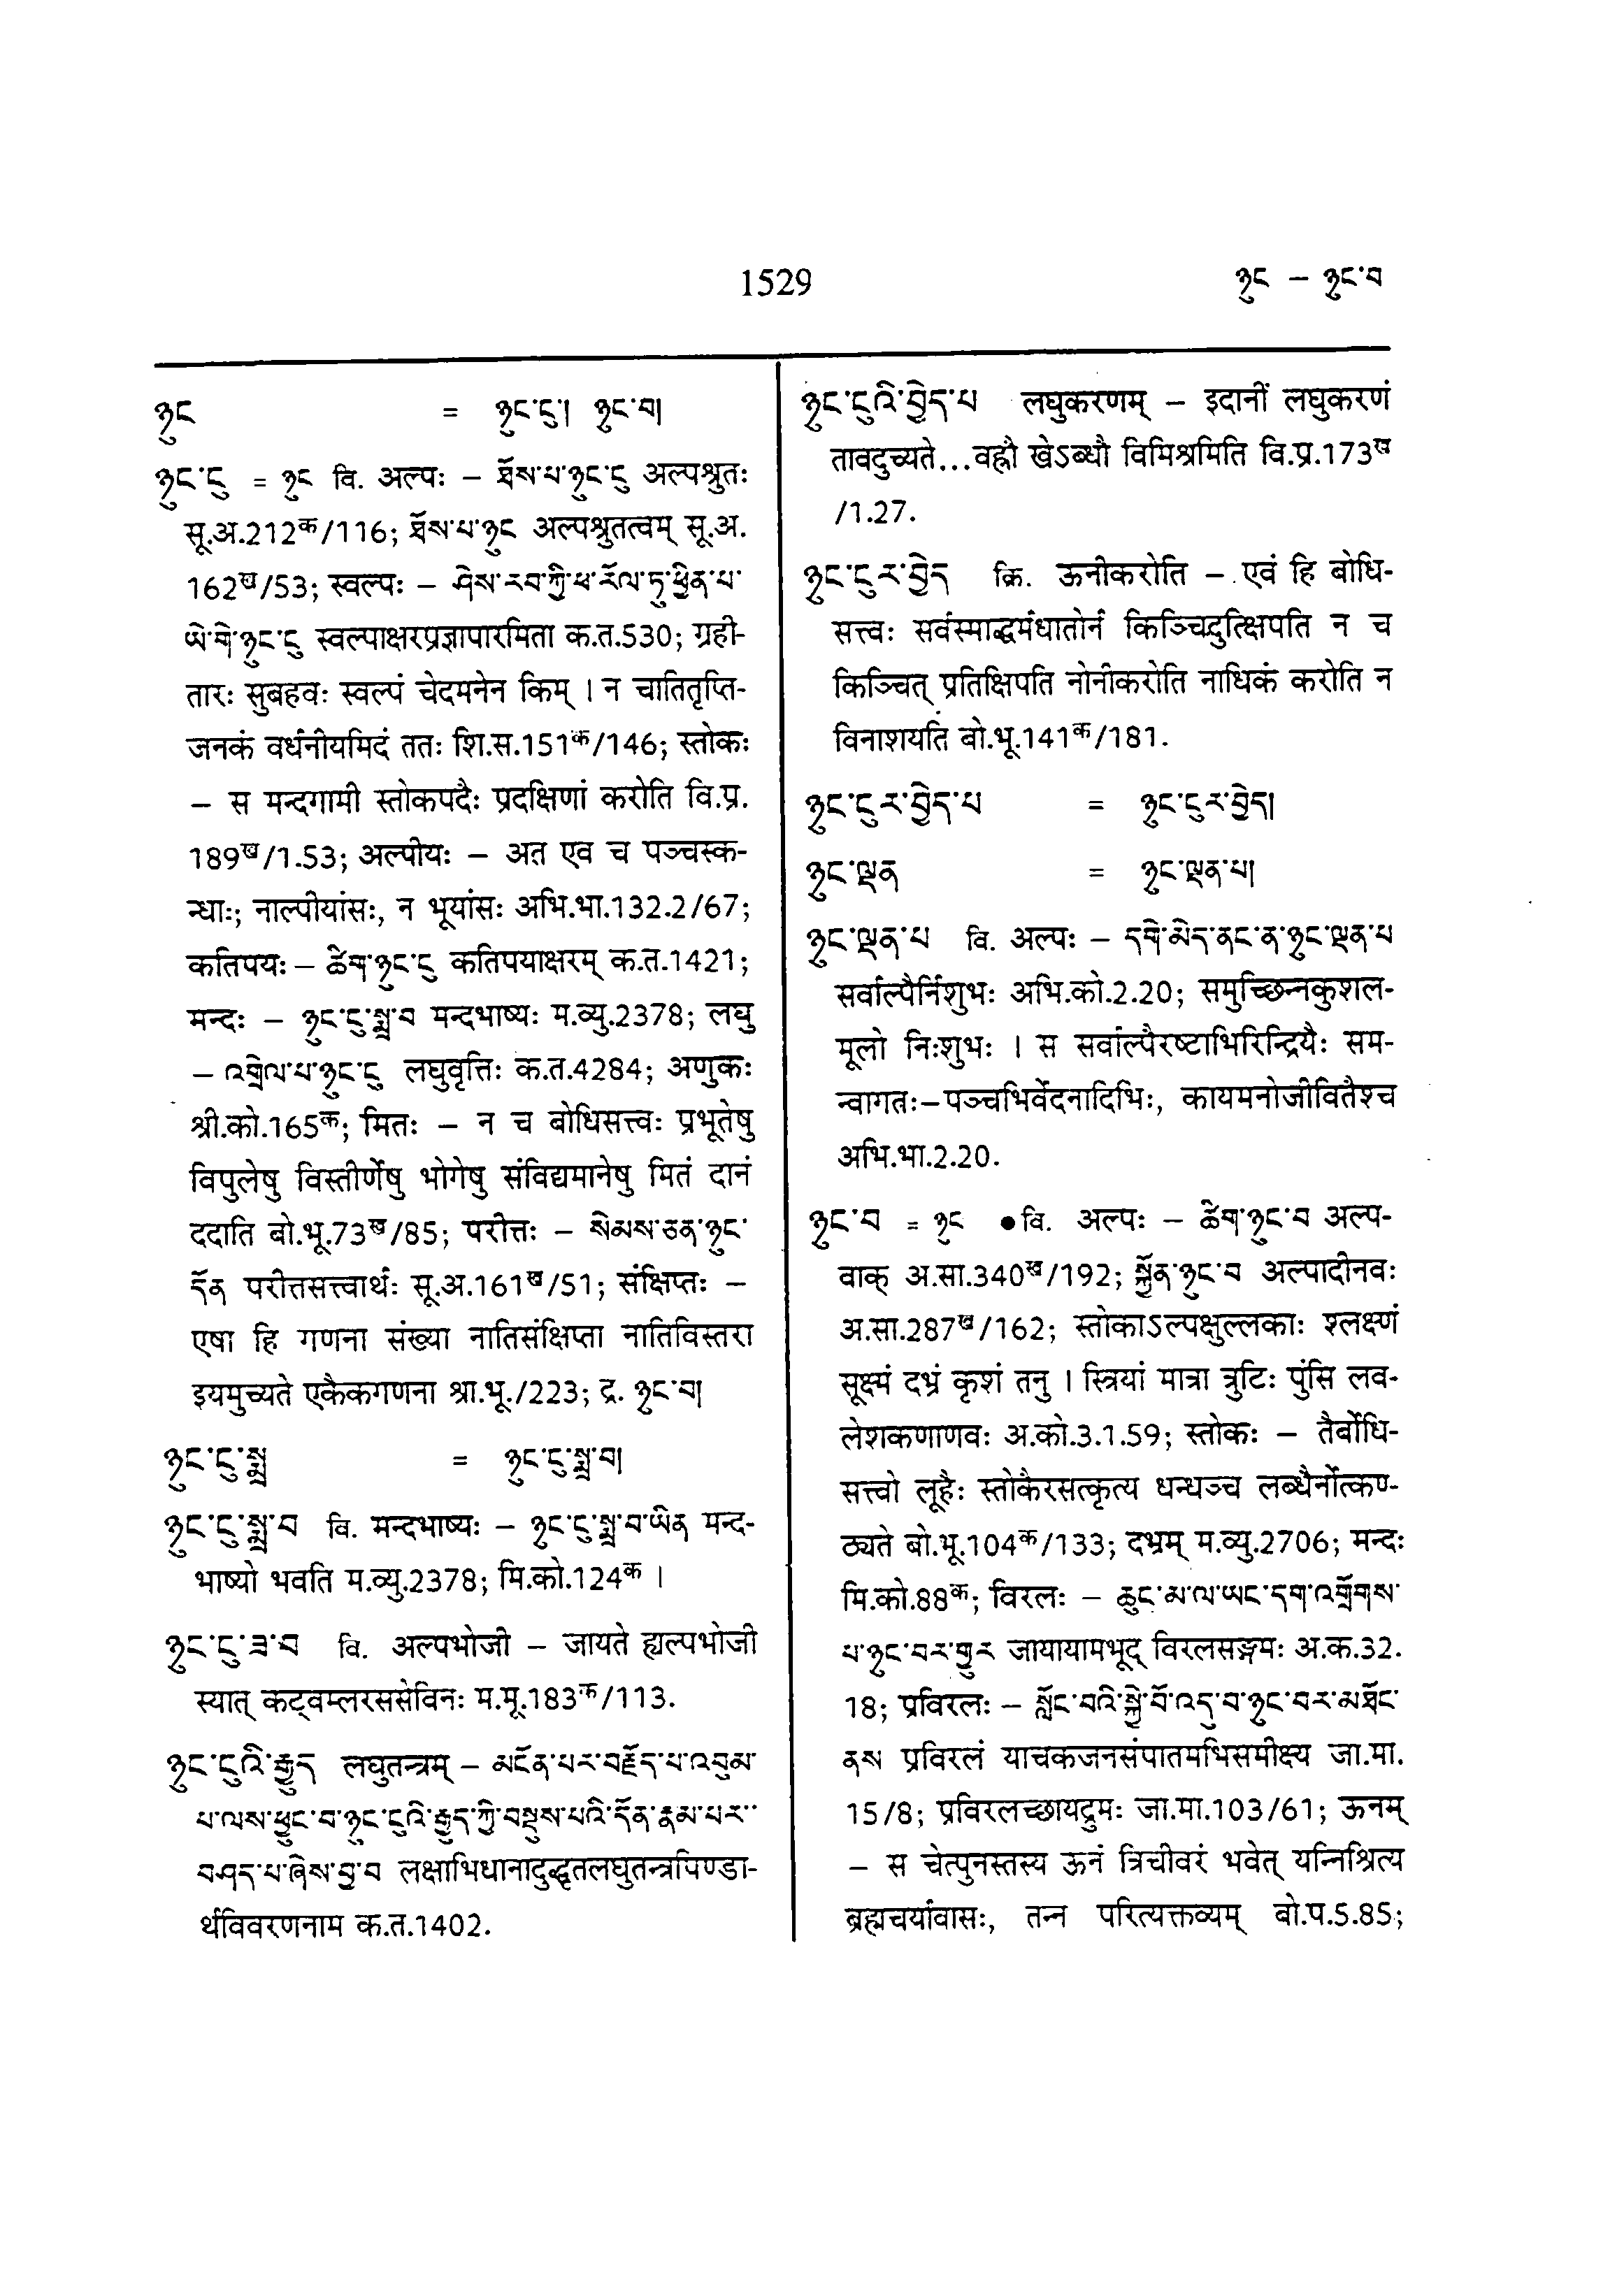 1529
ཉུང – ཉུང་བ
ཉུང = ཉུང་ངུ། ཉུང་བ།
ཉུང་ངུ = ཉུང वि. अल्पः – ཐོས་པ་ཉུང་ངུ अल्पश्रुतः
सू.अ.212क/116; ཐོས་པ་ཉུང अल्पश्रुतत्वम् सू.अ.
162ख/53; स्वल्पः – ཤེས་རབ་ཀྱི་ཕ་རོལ་ཏུ་ཕྱིན་པ་
ཡི་གེ་ཉུང་ངུ स्वल्पाक्षरप्रज्ञापारमिता क.त.530; ग्रही-
तारः सुबहवः स्वल्पं चेदमनेन किम् । न चातितृप्ति-
जनकं वर्धनीयमिदं ततः शि.स.151क/146; स्तोकः
– स मन्दगामी स्तोकपदैः प्रदक्षिणां करोति वि.प्र.
189ख/1.53; अल्पीयः – अत एव च पञ्चस्क-
न्धाः; नाल्पीयांसः, न भूयांसः अभि.भा.132.2/67;
कतिपयः – ཚིག་ཉུང་ངུ कतिपयाक्षरम् क.त.1421;
मन्दः – ཉུང་ངུ་སྨྲ་བ मन्दभाष्यः म.व्यु.2378; लघु
– འགྲེལ་པ་ཉུང་ངུ लघुवृत्तिः क.त.4284; अणुकः
श्री.को.165क; मितः – न च बोधिसत्त्वः प्रभूतेषु
विपुलेषु विस्तीर्णेषु भोगेषु संविद्यमानेषु मितं दानं
ददाति बो.भू.73ख/85; परीत्तः – སེམས་ཅན་ཉུང་
དོན परीत्तसत्त्वार्थः सू.अ.161ख/51; संक्षिप्तः –
एषा हि गणना संख्या नातिसंक्षिप्ता नातिविस्तरा
इयमुच्यते एकैकगणना श्रा.भू./223; द्र. ཉུང་བ།
ཉུང་ངུ་སྨྲ = ཉུང་ངུ་སྨྲ་བ།
ཉུང་ངུ་སྨྲ་བ वि. मन्दभाष्यः – ཉུང་ངུ་སྨྲ་བ་ཡིན मन्द-
भाष्यो भवति म.व्यु.2378; मि.को.124क ।
ཉུང་ངུ་ཟ་བ वि. अल्पभोजी – जायते ह्यल्पभोजी
स्यात् कट्वम्लरससेविनः म.मू.183क/113.
ཉུང་ངུའི་རྒྱུད लघुतन्त्रम् – མངོན་པར་བརྗོད་པ་འབུམ་
པ་ལས་ཕྱུང་བ་ཉུང་ངུའི་རྒྱུད་ཀྱི་བསྡུས་པའི་དོན་རྣམ་པར་
བཤད་པ་ཞེས་བྱ་བ लक्षाभिधानादुद्धृतलघुतन्त्रपिण्डा-
र्थविवरणनाम क.त.1402.
ཉུང་ངུའི་བྱེད་པ लघुकरणम् – इदानीं लघुकरणं
तावदुच्यते...वह्नौ खेऽब्धौ विमिश्रमिति वि.प्र.173ख
/1.27.
ཉུང་ངུར་བྱེད क्रि. ऊनीकरोति – एवं हि बोधि-
सत्त्वः सर्वस्माद्धर्मधातोर्न किञ्चिदुत्क्षिपति न च
किञ्चित् प्रतिक्षिपति नोनीकरोति नाधिकं करोति न
विनाशयति बो.भू.141क/181.
ཉུང་ངུར་བྱེད་པ = ཉུང་ངུར་བྱེད།
ཉུང་ལྡན = ཉུང་ལྡན་པ།
ཉུང་ལྡན་པ वि. अल्पः – དགེ་མེད་ནང་ན་ཉུང་ལྡན་པ
सर्वाल्पैर्निशुभः अभि.को.2.20; समुच्छिन्नकुशल-
मूलो निःशुभः । स सर्वाल्पैरष्टाभिरिन्द्रियैः सम-
न्वागतः–पञ्चभिर्वेदनादिभिः, कायमनोजीवितैश्च
अभि.भा.2.20.
ཉུང་བ = ཉུང ●वि. अल्पः – ཚིག་ཉུང་བ अल्प-
वाक् अ.सा.340ख/192; སྐྱོན་ཉུང་བ अल्पादीनवः
अ.सा.287ख/162; स्तोकाऽल्पक्षुल्लकाः श्लक्ष्णं
सूक्ष्मं दभ्रं कृशं तनु । स्त्रियां मात्रा त्रुटिः पुंसि लव-
लेशकणाणवः अ.को.3.1.59; स्तोकः – तैर्बोधि-
सत्त्वो लूहैः स्तोकैरसत्कृत्य धन्धञ्च लब्धैर्नोत्कण-
ठ्यते बो.भू.104क/133; दभ्रम् म.व्यु.2706; मन्दः
मि.को.88क; विरलः – ཆུང་མ་ལ་ཡང་དག་འགྲོགས་
པ་ཉུང་བར་གྱུར जायायामभूद् विरलसङ्गमः अ.क.32.
18; प्रविरलः – སློང་བའི་སྐྱེ་བོ་འདུ་བ་ཉུང་བར་མཐོང་
ནས प्रविरलं याचकजनसंपातमभिसमीक्ष्य जा.मा.
15/8; प्रविरलच्छायद्रुमः जा.मा.103/61; ऊनम्
– स चेत्पुनस्तस्य ऊनं त्रिचीवरं भवेत् यन्निश्रित्य
ब्रह्मचर्यावासः, तन्न परित्यक्तव्यम् बो.प.5.85;